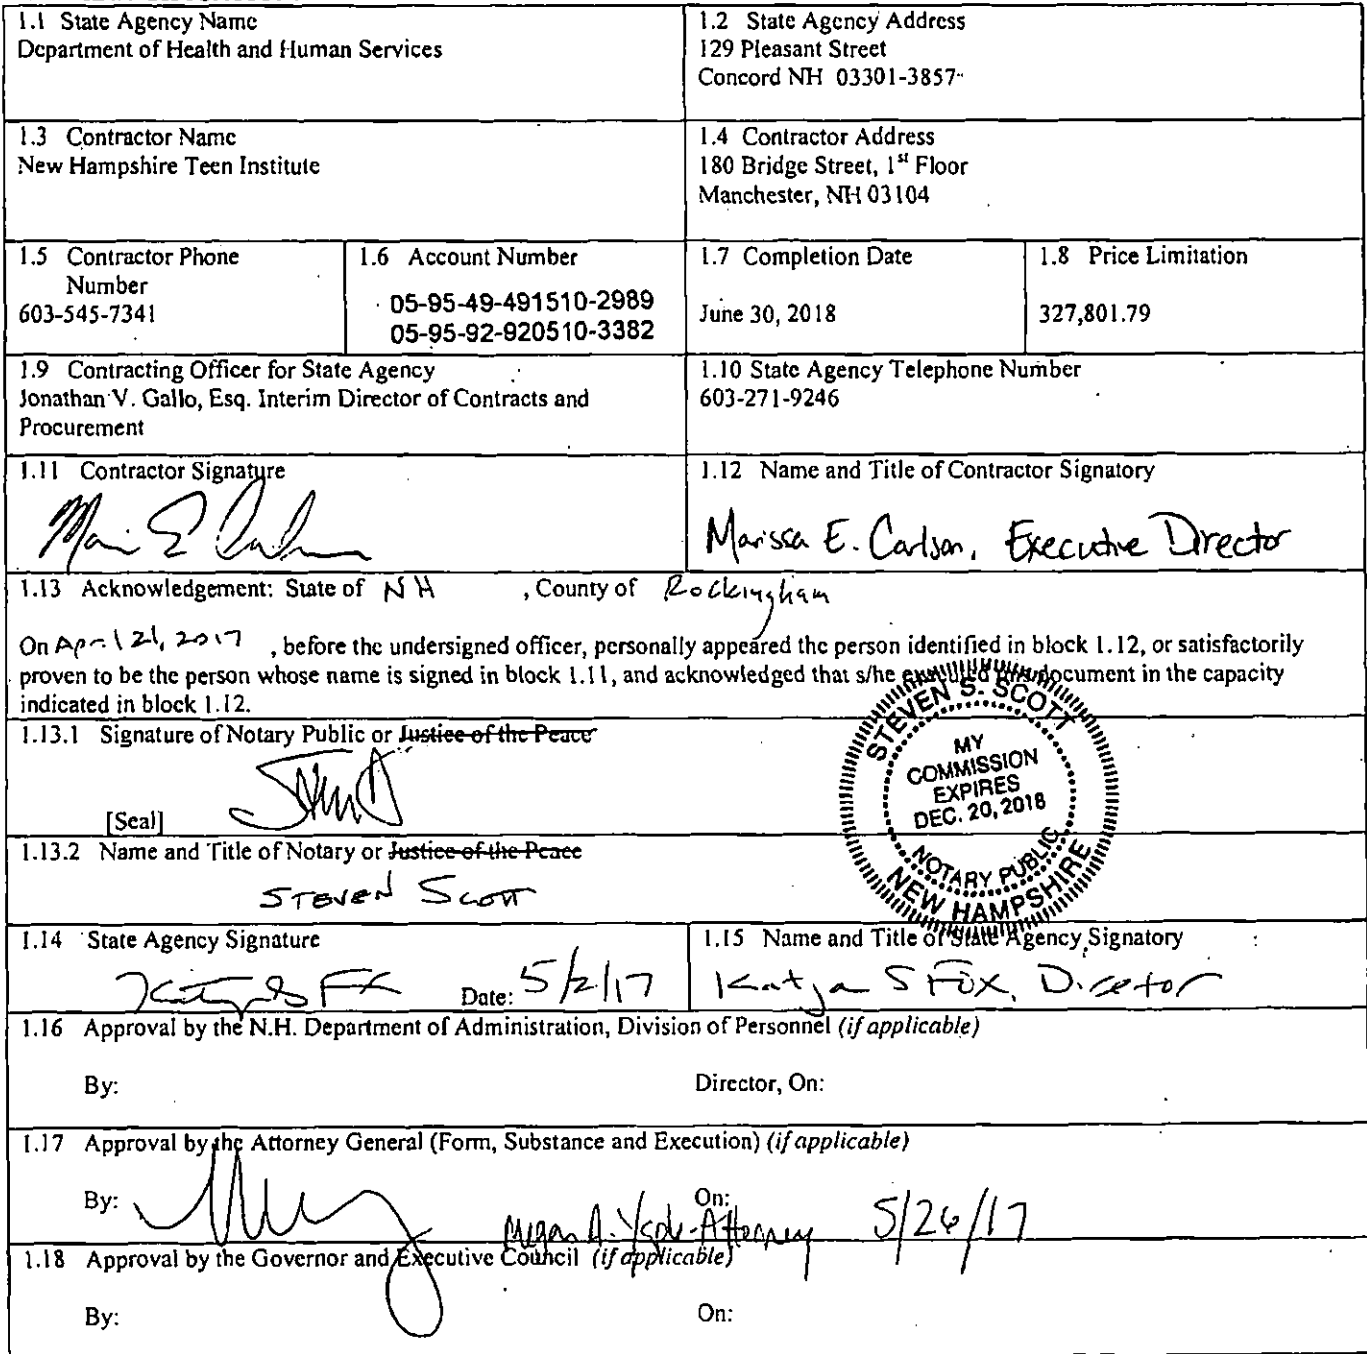 1.1 State Agency Name
Department of Health and Human Services
1.2 State Agency Address
129 Pleasant Street
Concord NH 03301-3857
1.3 Contractor Name
New Hampshire Teen Institute
1.4 Contractor Address
180 Bridge Street, 1st Floor
Manchester, NH 03104
1.5 Contractor Phone
Number
603-545-7341
1.6 Account Number
05-95-49-491510-2989
05-95-92-920510-3382
1.7 Completion Date
June 30, 2018
1.8 Price Limitation
327,801.79
1.9 Contracting Officer for State Agency
Jonathan V. Gallo, Esq. Interim Director of Contracts and
Procurement
1.10 State Agency Telephone Number
603-271-9246
1.11 Contractor Signature
1.12 Name and Title of Contractor Signatory
Marissa E. Carlson, Executive Director
1.13 Acknowledgement: State of NH , County of Rockingham
On April 21, 2017 , before the undersigned officer, personally appeared the person identified in block 1.12, or satisfactorily
proven to be the person whose name is signed in block 1.11, and acknowledged that s/he executed this document in the capacity
indicated in block 1.12.
1.13.1 Signature of Notary Public or Justice of the Peace
[Seal]
STEVEN S. SCOTT
MY
COMMISSION
EXPIRES
DEC. 20, 2018
NOTARY PUBLIC
NEW HAMPSHIRE
1.13.2 Name and Title of Notary or Justice of the Peace
STEVEN SCOTT
1.14 State Agency Signature
Date: 5/2/17
1.15 Name and Title of State Agency Signatory
Katja S Fox, Director
1.16 Approval by the N.H. Department of Administration, Division of Personnel (if applicable)
By: Director, On:
1.17 Approval by the Attorney General (Form, Substance and Execution) (if applicable)
By: On:
Megan A. Attorney 5/26/17
1.18 Approval by the Governor and Executive Council (if applicable)
By: On: